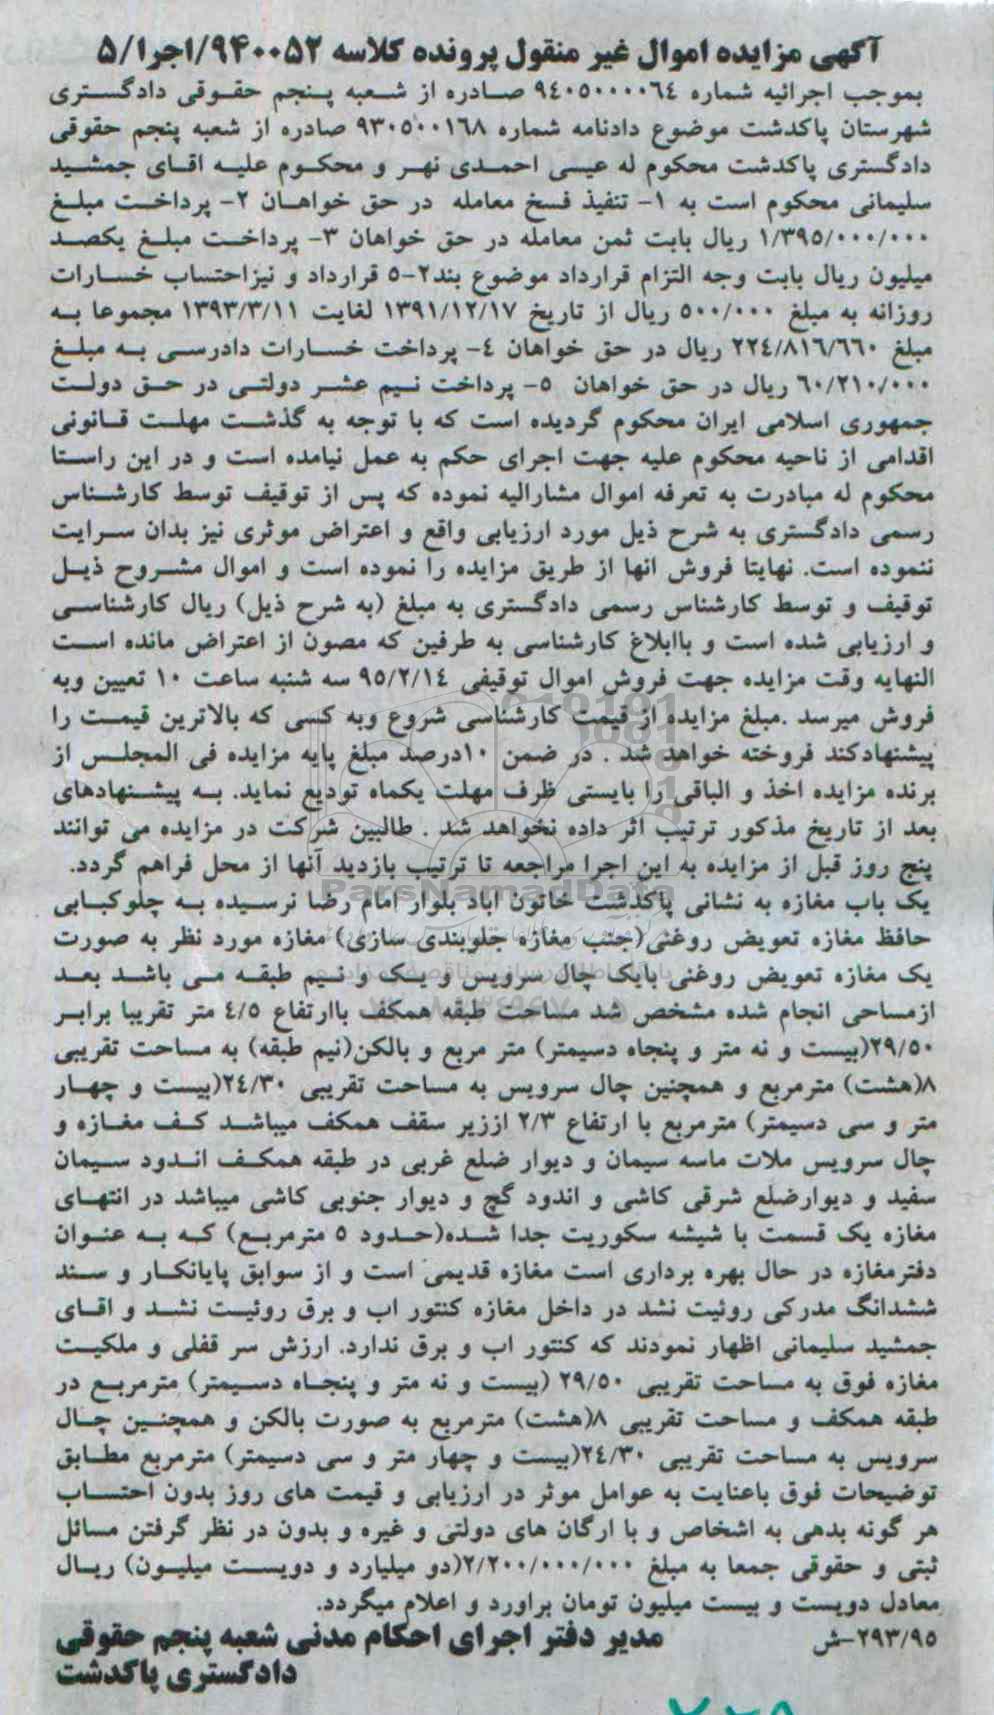 آگهی مزایده اموال غیر منقول پرونده کلاسه ۹۴۰۰۵۲/اجرا/۵
بموجب اجرائیه شماره ۹٤۰۵۰۰۰۰٦٤ صادره از شعبه پنجم حقوقی دادگستری
شهرستان پاکدشت موضوع دادنامه شماره ۹۳۰۵۰۰۱٦۸ صادره از شعبه پنجم حقوقی
دادگستری پاکدشت محکوم له عیسی احمدی نهر و محکوم علیه اقای جمشید
سلیمانی محکوم است به ۱- تنفیذ فسخ معامله در حق خواهان ۲- پرداخت مبلغ
۱/۳۹۵/۰۰۰/۰۰۰ ریال بابت ثمن معامله در حق خواهان ۳- پرداخت مبلغ یکصد
میلیون ریال بابت وجه التزام قرارداد موضوع بند۲-۵ قرارداد و نیزاحتساب خسارات
روزانه به مبلغ ۵۰۰/۰۰۰ ریال از تاریخ ۱۳۹۱/۱۲/۱۷ لغایت ۱۳۹۳/۳/۱۱ مجموعا به
مبلغ ۲۲٤/۸۱٦/٦٦۰ ریال در حق خواهان ٤- پرداخت خسارات دادرسی به مبلغ
٦۰/۲۱۰/۰۰۰ ریال در حق خواهان ۵- پرداخت نیم عشر دولتی در حق دولت
جمهوری اسلامی ایران محکوم گردیده است که با توجه به گذشت مهلت قانونی
اقدامی از ناحیه محکوم علیه جهت اجرای حکم به عمل نیامده است و در این راستا
محکوم له مبادرت به تعرفه اموال مشارالیه نموده که پس از توقیف توسط کارشناس
رسمی دادگستری به شرح ذیل مورد ارزیابی واقع و اعتراض موثری نیز بدان سرایت
ننموده است. نهایتا فروش انها از طریق مزایده را نموده است و اموال مشروح ذیل
توقیف و توسط کارشناس رسمی دادگستری به مبلغ (به شرح ذیل) ریال کارشناسی
و ارزیابی شده است و باابلاغ کارشناسی به طرفین که مصون از اعتراض مانده است
النهایه وقت مزایده جهت فروش اموال توقیفی ۹۵/۲/۱٤ سه شنبه ساعت ۱۰ تعیین وبه
فروش میرسد .مبلغ مزایده از قیمت کارشناسی شروع وبه کسی که بالاترین قیمت را
پیشنهادکند فروخته خواهد شد . در ضمن ۱۰درصد مبلغ پایه مزایده فی المجلس از
برنده مزایده اخذ و الباقی را بایستی ظرف مهلت یکماه تودیع نماید. به پیشنهادهای
بعد از تاریخ مذکور ترتیب اثر داده نخواهد شد . طالبین شرکت در مزایده می توانند
پنج روز قبل از مزایده به این اجرا مراجعه تا ترتیب بازدید آنها از محل فراهم گردد.
ParsNamadData
یک باب مغازه به نشانی پاکدشت خاتون اباد بلوار امام رضا نرسیده به چلوکبابی
حافظ مغازه تعویض روغنی(جنب مغازه جلوبندی سازی) مغازه مورد نظر به صورت
یک مغازه تعویض روغنی بایک چال سرویس و یک و نیم طبقه می باشد بعد
ازمساحی انجام شده مشخص شد مساحت طبقه همکف باارتفاع ٤/۵ متر تقریبا برابر
۲۹/۵۰(بیست و نه متر و پنجاه دسیمتر) متر مربع و بالکن(نیم طبقه) به مساحت تقریبی
۸(هشت) مترمربع و همچنین چال سرویس به مساحت تقریبی ۲٤/۳۰(بیست و چهار
متر و سی دسیمتر) مترمربع با ارتفاع ۲/۳ اززیر سقف همکف میباشد کف مغازه و
چال سرویس ملات ماسه سیمان و دیوار ضلع غربی در طبقه همکف اندود سیمان
سفید و دیوارضلع شرقی کاشی و اندود گچ و دیوار جنوبی کاشی میباشد در انتهای
مغازه یک قسمت با شیشه سکوریت جدا شده(حدود ۵ مترمربع) که به عنوان
دفترمغازه در حال بهره برداری است مغازه قدیمی است و از سوابق پایانکار و سند
ششدانگ مدرکی روئیت نشد در داخل مغازه کنتور اب و برق روئیت نشد و اقای
جمشید سلیمانی اظهار نمودند که کنتور اب و برق ندارد. ارزش سر قفلی و ملکیت
مغازه فوق به مساحت تقریبی ۲۹/۵۰ (بیست و نه متر و پنجاه دسیمتر) مترمربع در
طبقه همکف و مساحت تقریبی ۸(هشت) مترمربع به صورت بالکن و همچنین چال
سرویس به مساحت تقریبی ۲٤/۳۰(بیست و چهار متر و سی دسیمتر) مترمربع مطابق
توضیحات فوق باعنایت به عوامل موثر در ارزیابی و قیمت های روز بدون احتساب
هر گونه بدهی به اشخاص و با ارگان های دولتی و غیره و بدون در نظر گرفتن مسائل
ثبتی و حقوقی جمعا به مبلغ ۲/۲۰۰/۰۰۰/۰۰۰(دو میلیارد و دویست میلیون) ریال
معادل دویست و بیست میلیون تومان براورد و اعلام میگردد.
۲۹۳/۹۵-ش
مدیر دفتر اجرای احکام مدنی شعبه پنجم حقوقی
دادگستری پاکدشت